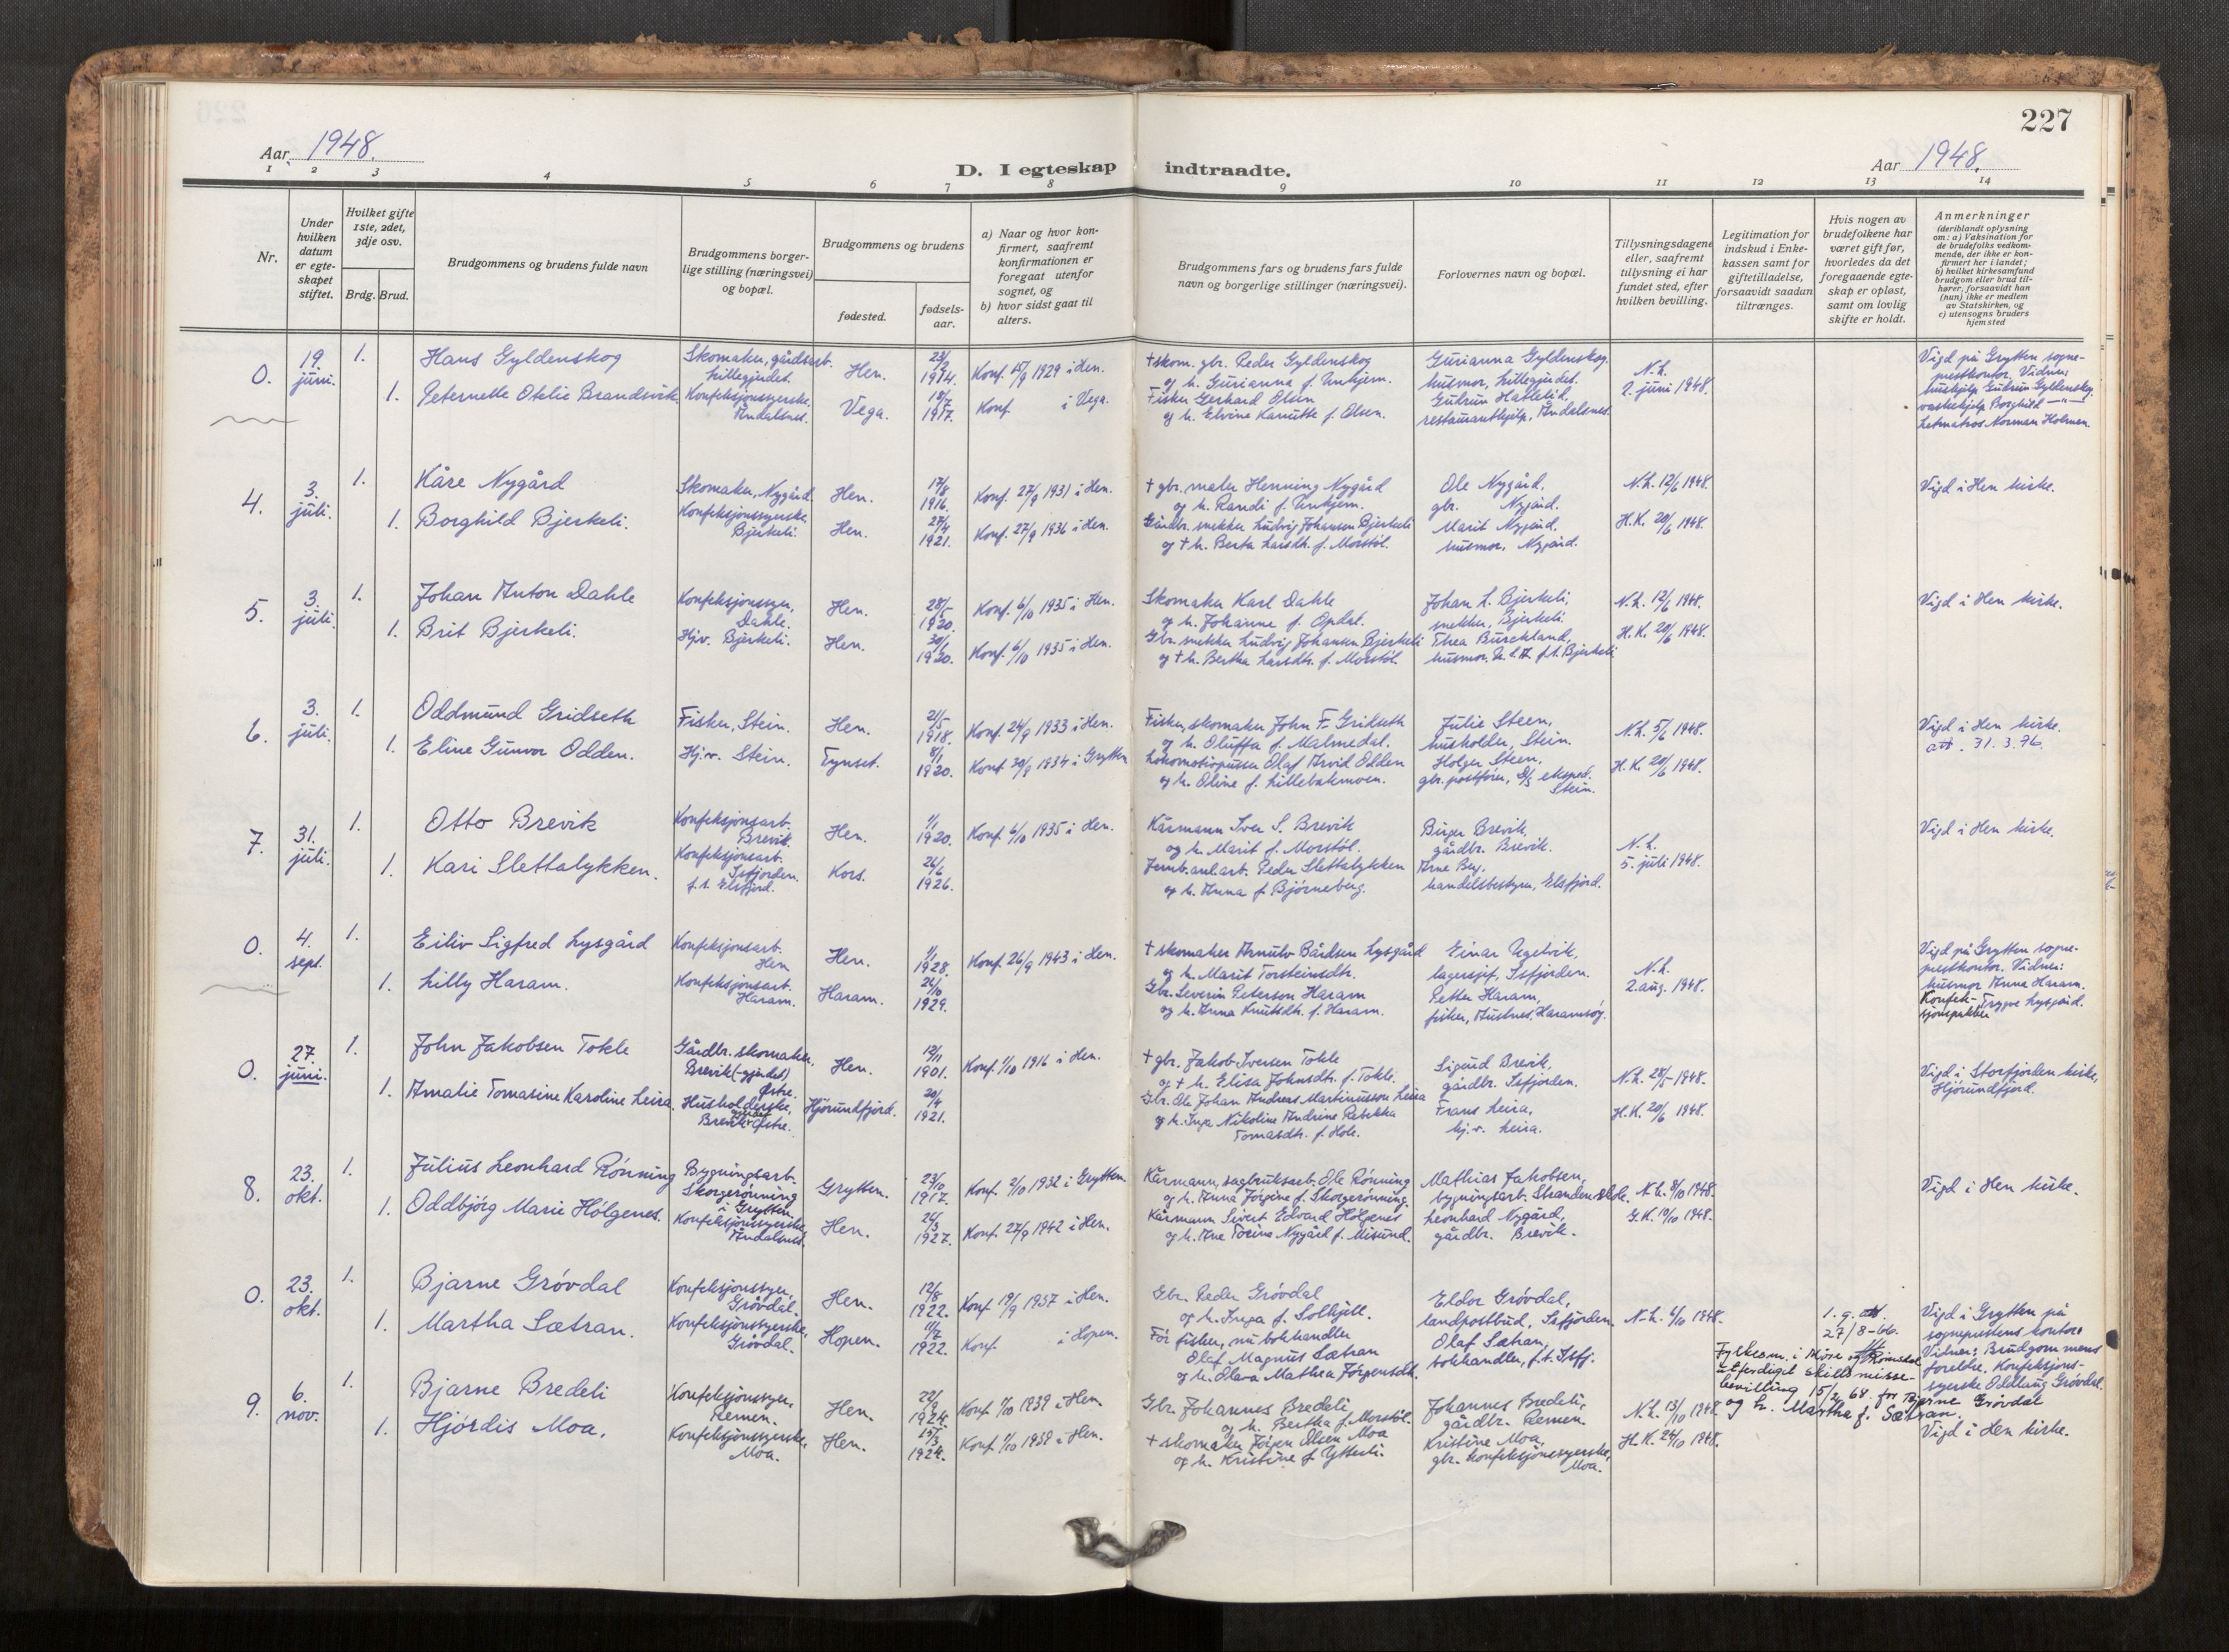 227
Aar 1948.
D. I egteskap indtraadte.
Aar 1948.
1 2 3 4 5 6 7 8 9 10 11 12 13 14
Nr.
Under hvilken datum er egteskapet stiftet.
Hvilket gifte 1ste, 2det, 3dje osv.
Brdg. Brud.
Brudgommens og brudens fulde navn
Brudgommens borgerlige stilling (næringsvei) og bopæl.
Brudgommens og brudens
fødested.
fødselsaar.
a) Naar og hvor konfirmert, saafremt konfirmationen er foregaat utenfor sognet, og
b) hvor sidst gaat til alters.
Brudgommens fars og brudens fars fulde navn og borgerlige stillinger (næringsvei).
Forlovernes navn og bopæl.
Tillysningsdagene eller, saafremt tillysning ei har fundet sted, efter hvilken bevilling.
Legitimation for indskud i Enkekassen samt for giftetilladelse, forsaavidt saadan tiltrænges.
Hvis nogen av brudefolkene har været gift før, hvorledes da det foregaaende egteskap er opløst, samt om lovlig skifte er holdt.
Anmerkninger
(deriblandt oplysning om: a) Vaksination for de brudefolks vedkommende, der ikke er konfirmert her i landet; b) hvilket kirkesamfund brudgom eller brud tilhører, forsaavidt han (hun) ikke er medlem av Statskirken, og c) utensogns bruders hjemsted
0. 19. juni. 1. Hans Gyldenskog Skomaker, gårdsarb. Lillegjerdet. Hen. 23/9 1914. Konf. 15/9 1929 i Hen.
† skom. gbr. Peder Gyldenskog og h. Gurianna f. Unhjem. Gurianna Gyldenskog, husmor, Lillegjerdet. N.L. 2. juni 1948.
1. Peternelle Otelie Brandsvik. Konfeksjonssyerske, Åndalsnes. Vega. 18/7 1917. Konf. i Vega.
Fisker Gerhard Olsen og h. Elvine Kanutte f. Olsen. Gudrun Hatlelid, restauranthjelp, Åndalsnes.
Vigd på Grytten sogneprestkontor. Vidner: hushjelp Gudrun Gyldenskog. vaskehjelp Borghild —"— Letmatros Norman Holmen.
4. 3. juli. 1. Kåre Nygård Skomaker, Nygård. Hen. 17/8 1916. Konf. 27/9 1931 i Hen.
† gbr. maler Henning Nygård og h. Randi f. Unhjem. Ole Nygård, gbr. Nygård. N.L. 12/6 1948.
1. Borghild Bjerkeli. Konfeksjonssyerske Bjerkeli. Hen. 27/4 1921. Konf. 27/9 1936 i Hen.
Gårdbr. snekker Ludvig Johansen Bjerkeli og † h. Berta Larsdtr. f. Morstøl. Marit Nygård, husmor, Nygård. H.K. 20/6 1948.
Vigd i Hen kirke.
5. 3. juli. 1. Johan Anton Dahle Konfeksjonssyer, Dahle. Hen. 28/5 1920. Konf. 6/10 1935 i Hen.
Skomaker Karl Dahle og h. Johanne f. Opdal. Johan L. Bjerkeli, snekker, Bjerkeli. N.L. 12/6 1948.
1. Brit Bjerkeli. Hjv. Bjerkeli. Hen. 30/6 1920. Konf. 6/10 1935 i Hen.
Gbr. snekker Ludvig Johansen Bjerkeli og † h. Bertha Larsdtr. f. Morstøl. Thea Burckland, husmor, U.S.A. f.t. Bjerkeli H.K. 20/6 1948.
Vigd i Hen kirke.
6. 3. juli. 1. Oddmund Gridseth Fisker, Stein. Hen. 21/5 1918. Konf. 24/9 1933 i Hen.
Fisker, skomaker John F. Gridseth og h. Oluffa f. Malmedal. Julie Steen, husholder, Stein. N.L. 5/6 1948.
1. Eline Gunvor Odden. Hj.v. Stein. Tynset. 8/1 1920. Konf. 30/9 1934 i Grytten
Lokomotivpusser Olaf Arvid Odden og h. Oline f. Lillebakmoen. Holger Steen, gbr. postfører, D/S eksped. Stein. H.K. 20/6 1948.
Vigd i Hen kirke.
31.3.76.
7. 31. juli. 1. Otto Brevik Konfeksjonsarb. Brevik. Hen. 1/1 1920. Konf. 6/10 1935 i Hen.
Kårmann Iver S. Brevik og h. Marit f. Morstøl. Birger Brevik, gårdbr. Brevik. N.L. 5. juli 1948.
1. Kari Slettalykken. Konfeksjonsarb. Isfjorden. f.t. Elsfjord. Kors. 26/6 1926.
Jernb.anl.arb. Peder Slettalykken og h. Anna f. Bjørneberg. Arne Berg, handelsbestyrer, Elsfjord.
Vigd i Hen kirke.
0. 4. sept. 1. Eiliv Sigfred Lysgård Konfeksjonsarb. Hen Hen. 1/1 1928. Konf. 26/9 1943 i Hen.
† skomaker Arnulv Bårdsen Lysgård og h. Marit Torsteinsdtr. Einar Ugelvik, lagersjef, Isfjorden. N.L. 2. aug. 1948.
1. Lilly Haram. Konfeksjonsarb. Haram. Haram. 26/10 1929.
Gbr. Severin Peterson Haram og h. Anna Knutsdtr. f. Haram. Petter Haram, fisker, Austnes, Haramsøy.
Vigd på Grytten sogneprestkontor. Vidner: husmor Anna Haram. Konfeksjonspakker Trygve Lysgård.
0. 27. juni. 1. John Jakobsen Tokle Gårdbr. skomaker, Brevik (-gjerdet) Østre. Hen. 12/11 1901. Konf. 1/10 1916 i Hen.
† gbr. Jakob Iversen Tokle og † h. Elisa Johnsdtr. f. Tokle. Sigurd Brevik, gårdbr. Isfjorden. N.L. 28/5 1948.
1. Amalie Tomasine Karoline Leira. Husholderske, Brevikgjerdet Østre. Hjørundfjord. 20/4 1921.
Gbr. Ole Johan Andreas Martinusson Leira og h. Inga Nikoline Andrine Rebekka Tomasdtr. f. Hole. Frans Leira, hj.v. Leira. H.K. 20/6 1948.
Vigd i Storfjorden kirke, Hjørundfjord.
8. 23. okt. 1. Julius Leonhard Rønning Bygningsarb. Skorgerønning i Grytten. Grytten. 23/10 1917. Konf. 2/10 1932 i Grytten
Kårmann, sagbruksarb. Ole Rønning og h. Anna Jørgine f. Skorgerønning. Mathias Jakobsen, bygningsarb. Stranden N.L. 8/10 1948.
1. Oddbjørg Marie Hølgenes. Konfeksjonssyerske, Åndalsnes. Hen. 24/3 1927. Konf. 27/9 1942 i Hen.
Kårmann Sivert Edvard Hølgenes og h. Ane Torine Nygård f. Misund. Leonhard Nygård, gårdbr. Brevik. G.K. 10/10 1948.
Vigd i Hen kirke.
0. 23. okt. 1. Bjarne Grøvdal Konfeksjonssyer, Grøvdal. Hen. 12/8 1922. Konf. 19/9 1937 i Hen.
Gbr. Peder Grøvdal og h. Inga f. Solhjell. Eldor Grøvdal, landpostbud, Isfjorden. N.L. 6/10 1948.
1. Martha Sætran. Konfeksjonssyerske, Grøvdal. Hopen. 11/7 1922. Konf. i Hopen.
Før fisker, nu bokhandler Olaf Magnus Sætran og h. Olava Mathea Jørgensdtr. Olaf Sætran, bokhandler, f.t. Isfj.
1. g. 27/8-66.
Vigd i Grytten på sogneprestens kontor. Vidner: Brudgommens foreldre. Konfeksjonssyerske Oddlaug Grøvdal.
Fylkesm. i Møre og Romsdal utferdiget skilsmissebevilling 15/2 68 for Bjarne Grøvdal og h. Martha f. Sætran.
9. 6. nov. 1. Bjarne Bredeli Konfeksjonssyer, Remen. Hen. 22/9 1924. Konf. 1/10 1939 i Hen.
Gbr. Johannes Bredeli og h. Bertha f. Morstøl. Johannes Bredeli, gårdbr. Remen. N.L. 13/10 1948.
1. Hjørdis Moa. Konfeksjonssyerske, Moa. Hen. 15/3 1924. Konf. 1/10 1939 i Hen.
† skomaker Jørgen Olsen Moa og h. Kristine f. Ytterli. Kristine Moa, gbr. konfeksjonssyerske, Moa. H.K. 24/10 1948.
Vigd i Hen kirke.